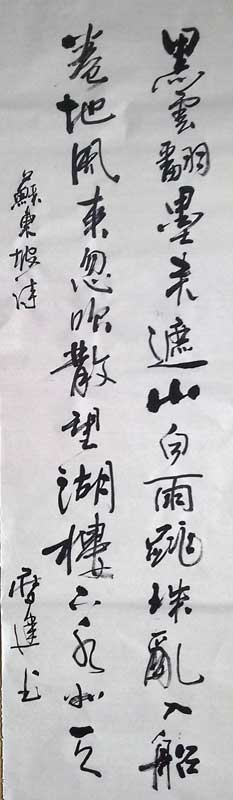 黑雲翻墨未遮山白雨跳珠亂入船
卷地風來忽吹散望湖樓下水如天
蘇東坡詩
摩達书